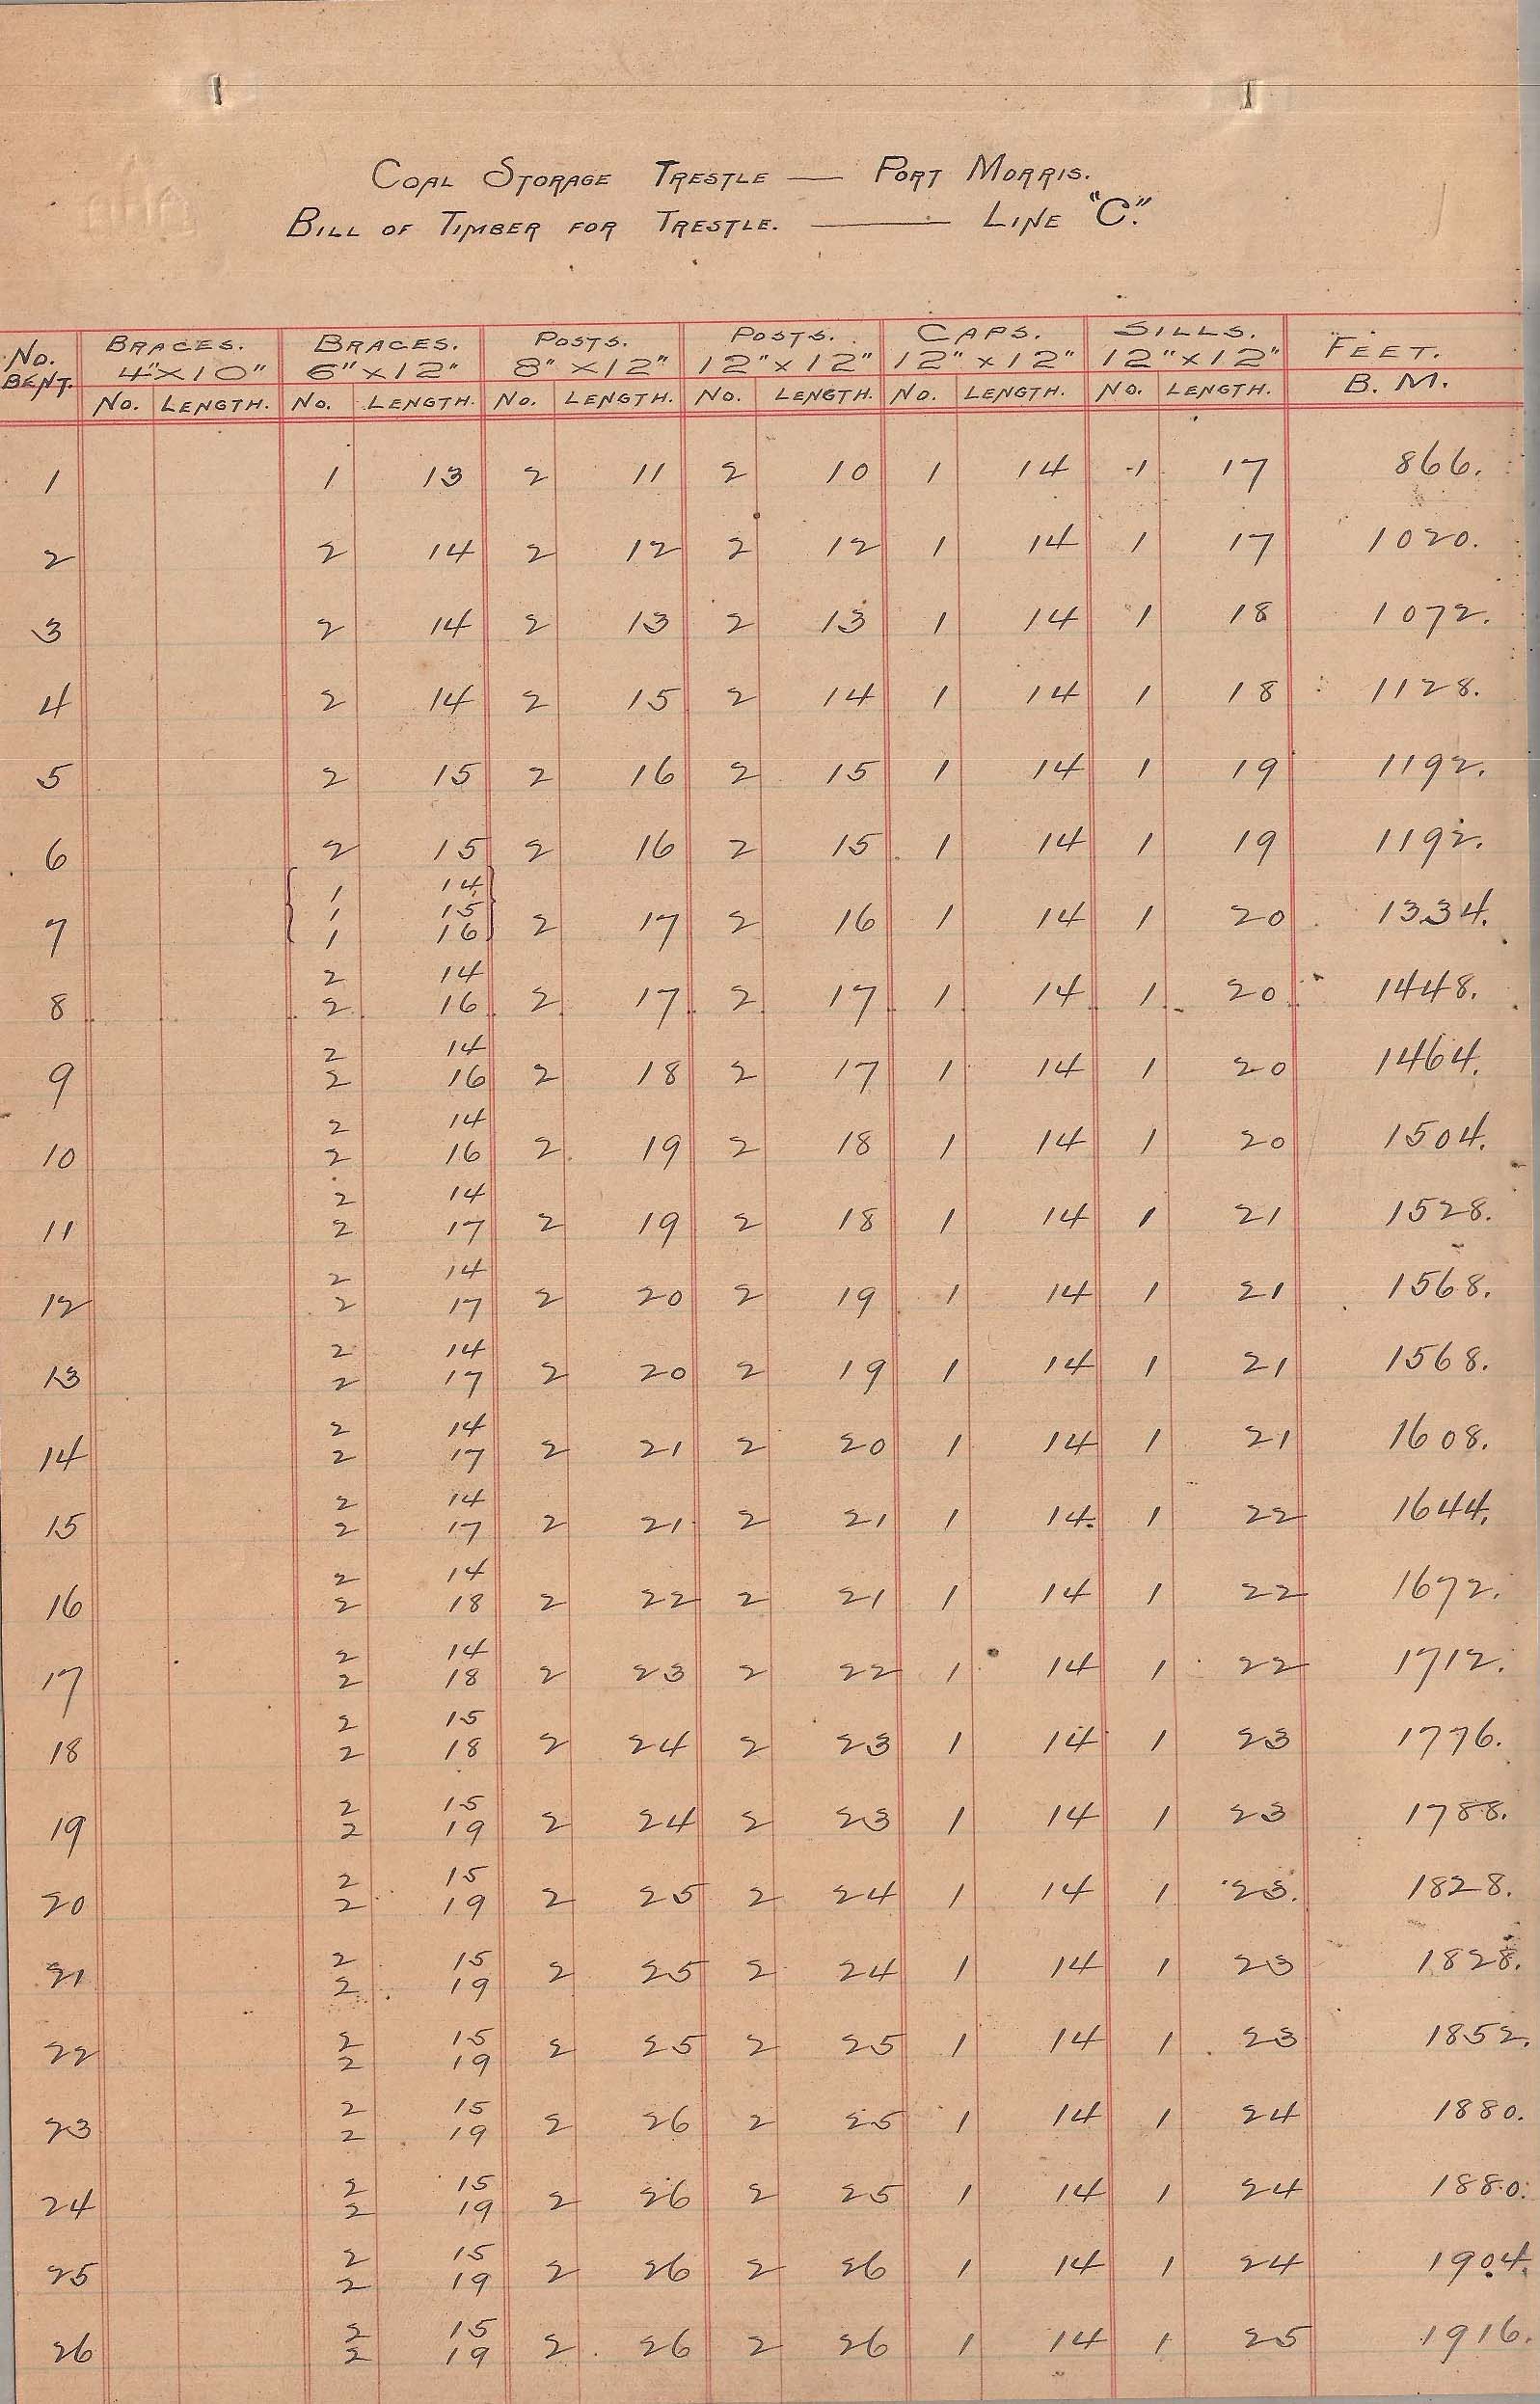 COAL STORAGE TRESTLE — PORT MORRIS.
BILL OF TIMBER FOR TRESTLE. — LINE "C".
No. BENT. | BRACES. 4"X10" | BRACES. 6"X12" | POSTS. 8"X12" | POSTS. 12"X12" | CAPS. 12"X12" | SILLS. 12"X12" | FEET. B. M.
No. | LENGTH. | No. | LENGTH. | No. | LENGTH. | No. | LENGTH. | No. | LENGTH. | No. | LENGTH.
1 1 13 2 11 2 10 1 14 1 17 866.
2 2 14 2 12 2 12 1 14 1 17 1020.
3 2 14 2 13 2 13 1 14 1 18 1072.
4 2 14 2 15 2 14 1 14 1 18 1128.
5 2 15 2 16 2 15 1 14 1 19 1192.
6 2 15 2 16 2 15 1 14 1 19 1192.
1 14
1 15
7 1 16 2 17 2 16 1 14 1 20 1334.
2 14
8 2 16 2 17 2 17 1 14 1 20 1448.
2 14
9 2 16 2 18 2 17 1 14 1 20 1464.
2 14
10 2 16 2 19 2 18 1 14 1 20 1504.
2 14
11 2 17 2 19 2 18 1 14 1 21 1528.
2 14
12 2 17 2 20 2 19 1 14 1 21 1568.
2 14
13 2 17 2 20 2 19 1 14 1 21 1568.
2 14
14 2 17 2 21 2 20 1 14 1 21 1608.
2 14
15 2 17 2 21 2 21 1 14 1 22 1644.
2 14
16 2 18 2 22 2 21 1 14 1 22 1672.
2 14
17 2 18 2 23 2 22 1 14 1 22 1712.
2 15
18 2 18 2 24 2 23 1 14 1 23 1776.
2 15
19 2 19 2 24 2 23 1 14 1 23 1788.
2 15
20 2 19 2 25 2 24 1 14 1 23. 1828.
2 15
21 2 19 2 25 2 24 1 14 1 23 1828.
2 15
22 2 19 2 25 2 25 1 14 1 23 1852.
2 15
23 2 19 2 26 2 25 1 14 1 24 1880.
2 15
24 2 19 2 26 2 25 1 14 1 24 1880.
2 15
25 2 19 2 26 2 26 1 14 1 24 1904.
2 15
26 2 19 2 26 2 26 1 14 1 25 1916.